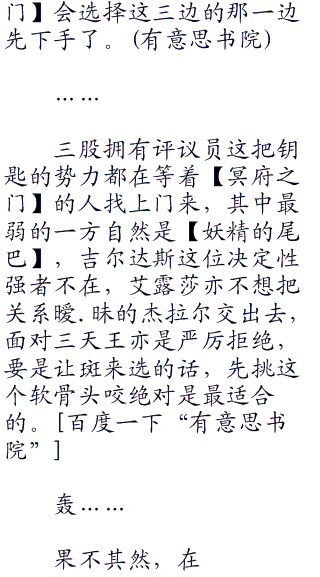 门】会选择这三边的那一边
先下手了。(有意思书院)
……
三股拥有评议员这把钥
匙的势力都在等着【冥府之
门】的人找上门来，其中最
弱的一方自然是【妖精的尾
巴】，吉尔达斯这位决定性
强者不在，艾露莎亦不想把
关系暧.昧的杰拉尔交出去，
面对三天王亦是严厉拒绝，
要是让斑来选的话，先挑这
个软骨头咬绝对是最适合
的。[百度一下“有意思书
院”]
轰……
果不其然，在